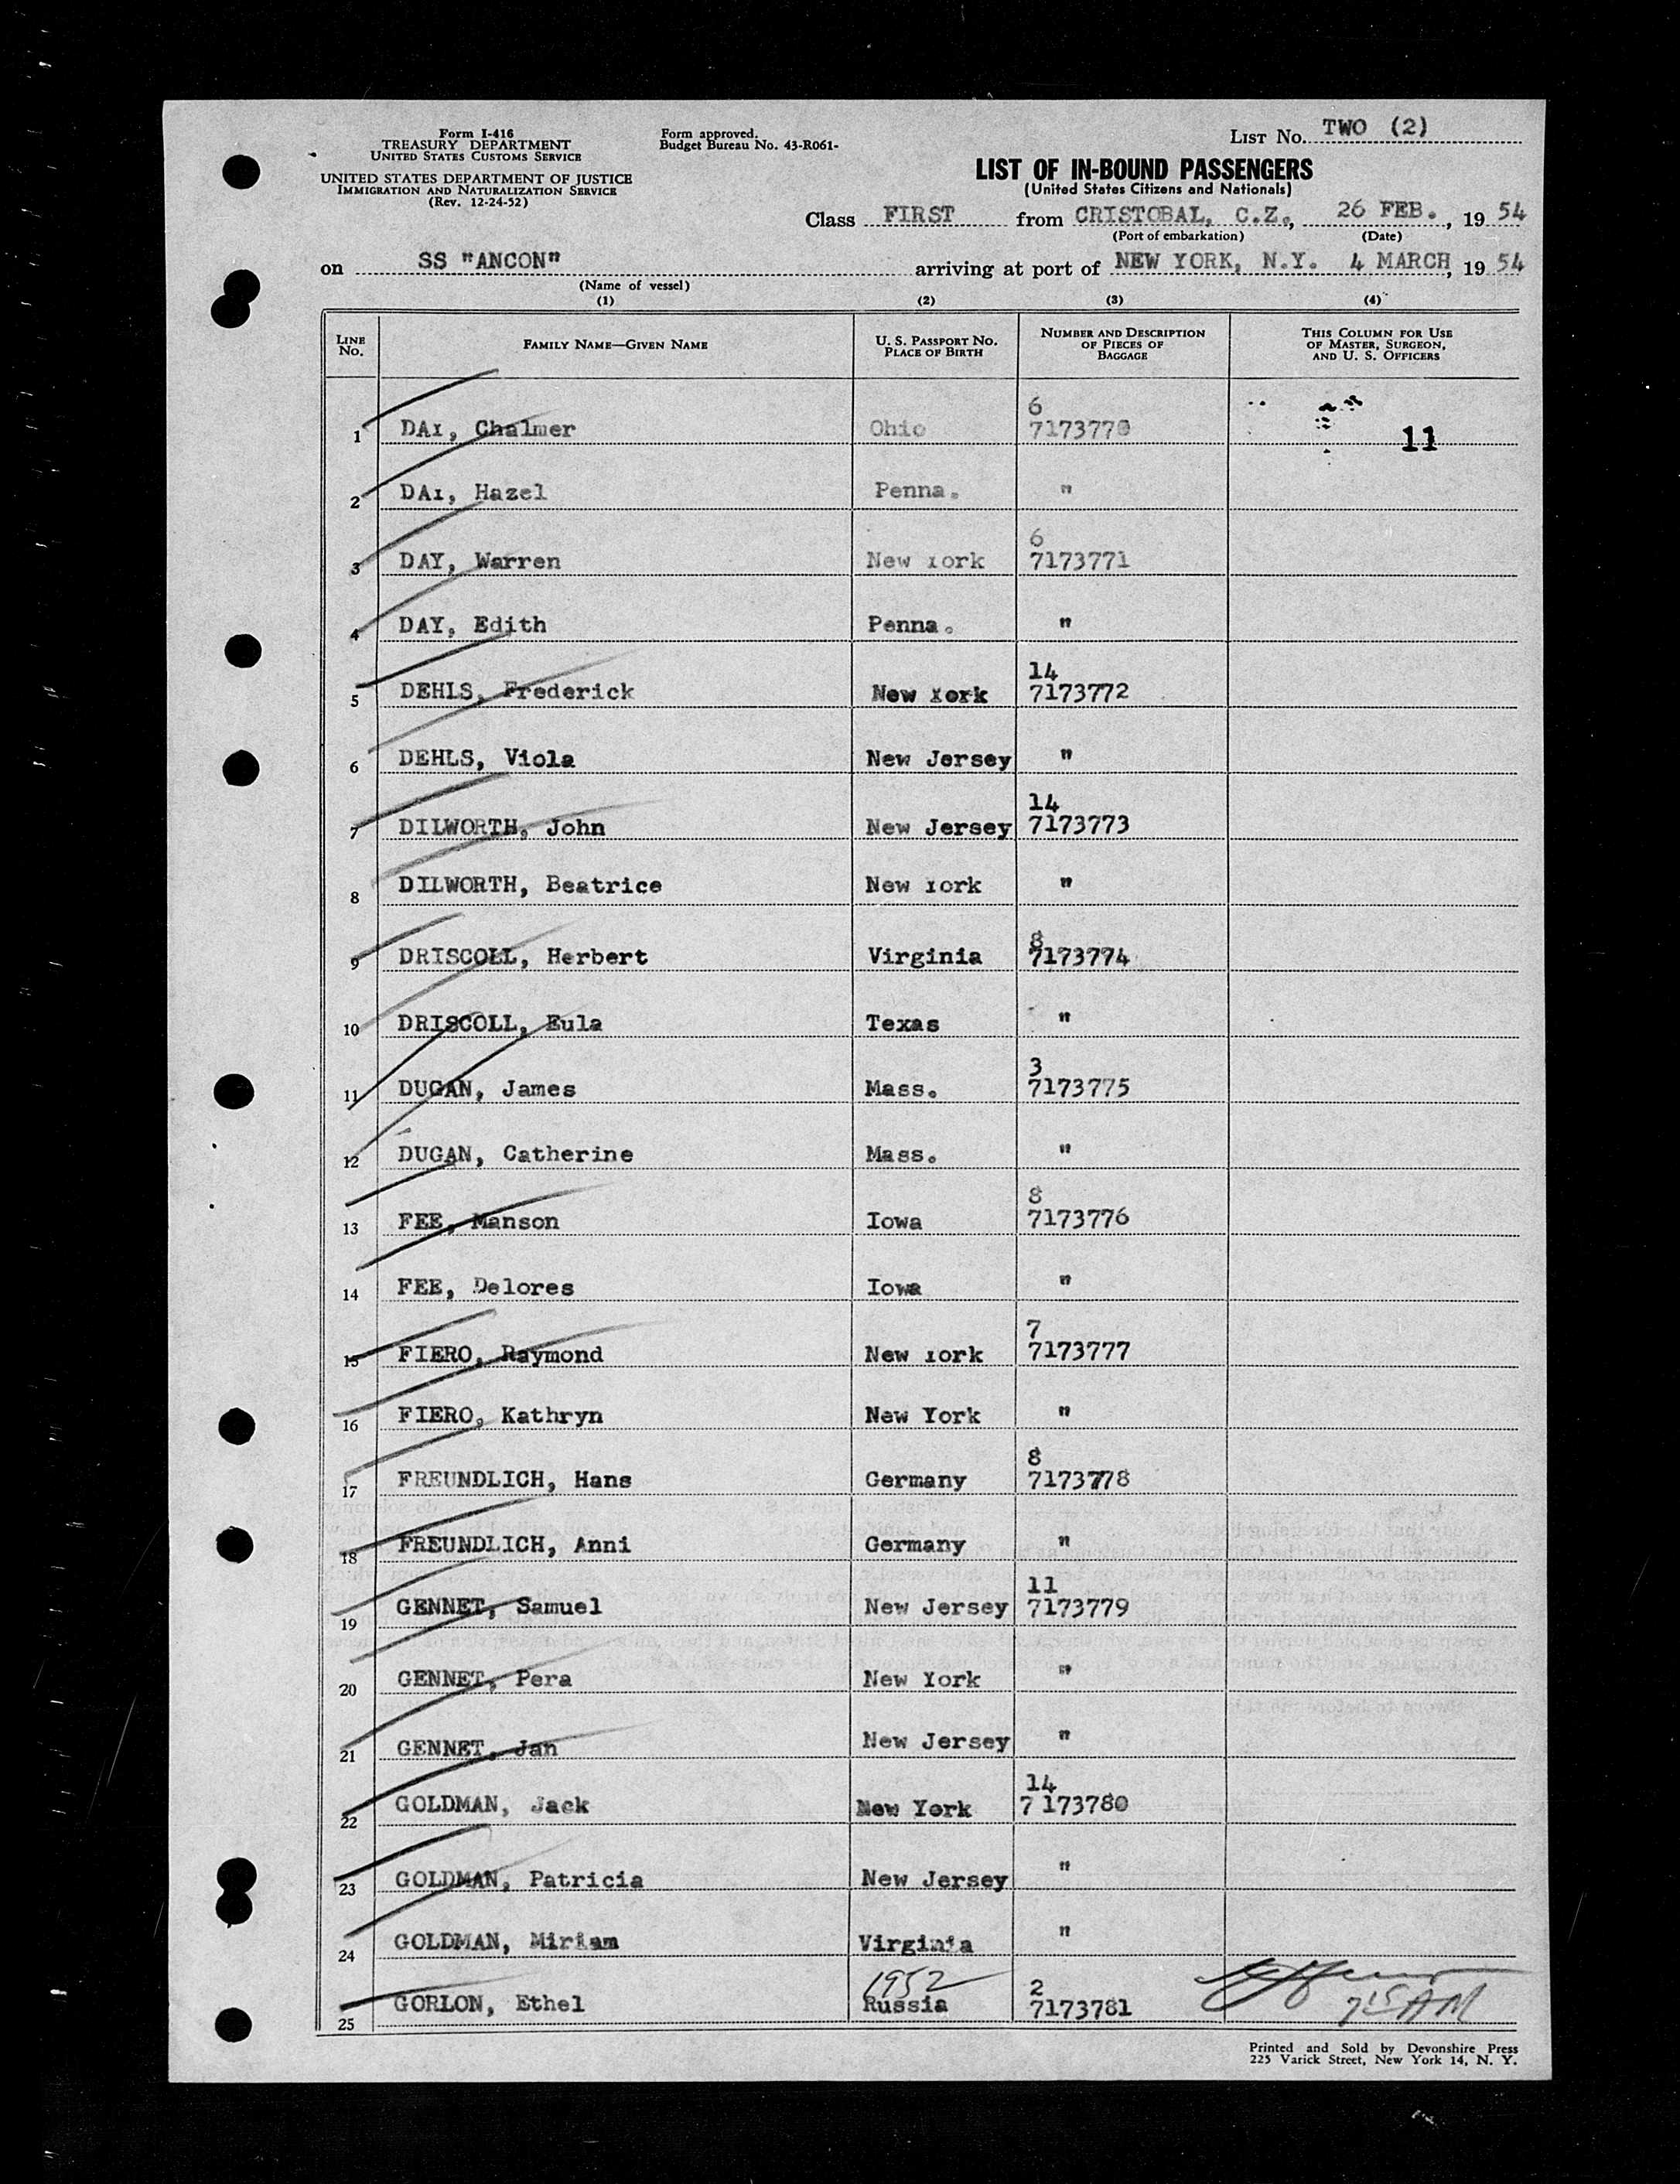 Form I-416
TREASURY DEPARTMENT
UNITED STATES CUSTOMS SERVICE
UNITED STATES DEPARTMENT OF JUSTICE
IMMIGRATION AND NATURALIZATION SERVICE
(Rev. 12-24-52)
Form approved.
Budget Bureau No. 43-R061-
LIST NO. TWO (2)
LIST OF IN-BOUND PASSENGERS
(United States Citizens and Nationals)
Class FIRST from CRISTOBAL, C.Z., 26 FEB., 19 54
(Port of embarkation) (Date)
on SS "ANCON" arriving at port of NEW YORK, N.Y. 4 MARCH, 19 54
(Name of vessel)
(1) (2) (3) (4)
LINE NO. FAMILY NAME—GIVEN NAME U. S. PASSPORT NO. PLACE OF BIRTH NUMBER AND DESCRIPTION OF PIECES OF BAGGAGE THIS COLUMN FOR USE OF MASTER, SURGEON, AND U. S. OFFICERS
6
1 DAY, Chalmer Ohio 7173770 11
2 DAY, Hazel Penna. "
6
3 DAY, Warren New York 7173771
4 DAY, Edith Penna. "
14
5 DEHLS, Frederick New York 7173772
6 DEHLS, Viola New Jersey "
14
7 DILWORTH, John New Jersey 7173773
8 DILWORTH, Beatrice New York "
8
9 DRISCOLL, Herbert Virginia 7173774
10 DRISCOLL, Eula Texas "
3
11 DUGAN, James Mass. 7173775
12 DUGAN, Catherine Mass. "
8
13 FEE, Manson Iowa 7173776
14 FEE, Delores Iowa "
7
15 FIERO, Raymond New York 7173777
16 FIERO, Kathryn New York "
8
17 FREUNDLICH, Hans Germany 7173778
18 FREUNDLICH, Anni Germany "
11
19 GENNET, Samuel New Jersey 7173779
20 GENNET, Pera New York "
21 GENNET, Jan New Jersey "
14
22 GOLDMAN, Jack New York 7173780
23 GOLDMAN, Patricia New Jersey "
24 GOLDMAN, Miriam Virginia "
1952 2
25 GORLON, Ethel Russia 7173781 7 15 AM
Printed and Sold by Devonshire Press
225 Varick Street, New York 14, N. Y.